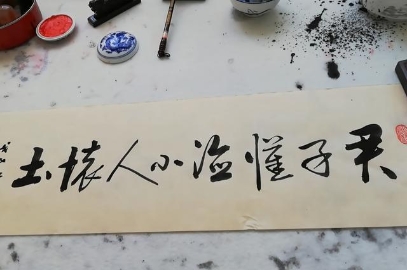 君子懷德小人懷土